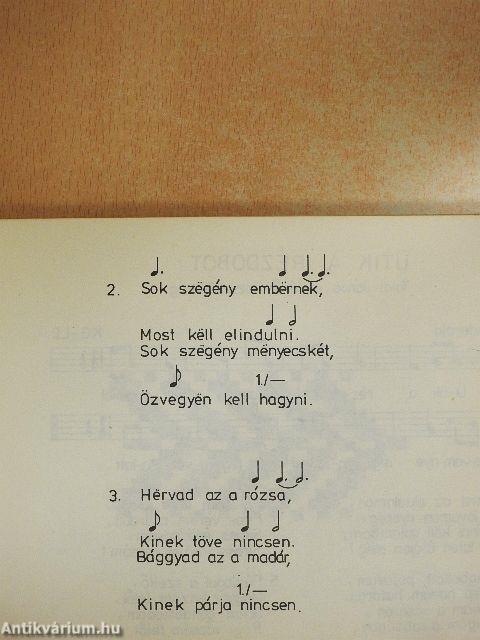 2. Sok szëgény embërnek,
Most këll elindulni.
Sok szëgény mënyecskét,
1./—
Özvegyën kell hagyni.
3. Hërvad az a rózsa,
Kinek töve nincsen.
Bággyad az a madár,
1./—
Kinek párja nincsen.
Antikvárium.hu